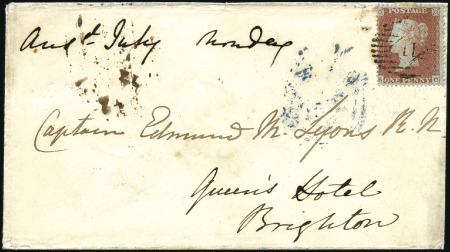 Ansd July Monday
POSTAGE
ONE PENNY
Captain Edmund M Lyons R.N
Queen's Hotel
Brighton